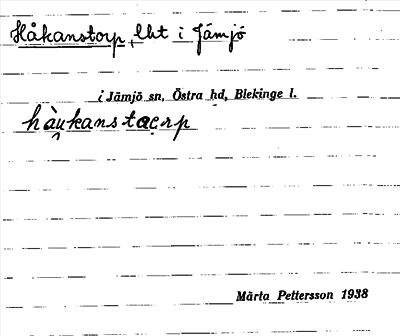 Håkanstorp, lht i Jämjö
i Jämjö sn, Östra hd, Blekinge l.
hàu̯kanstaɛ̨rp
Märta Pettersson 1938